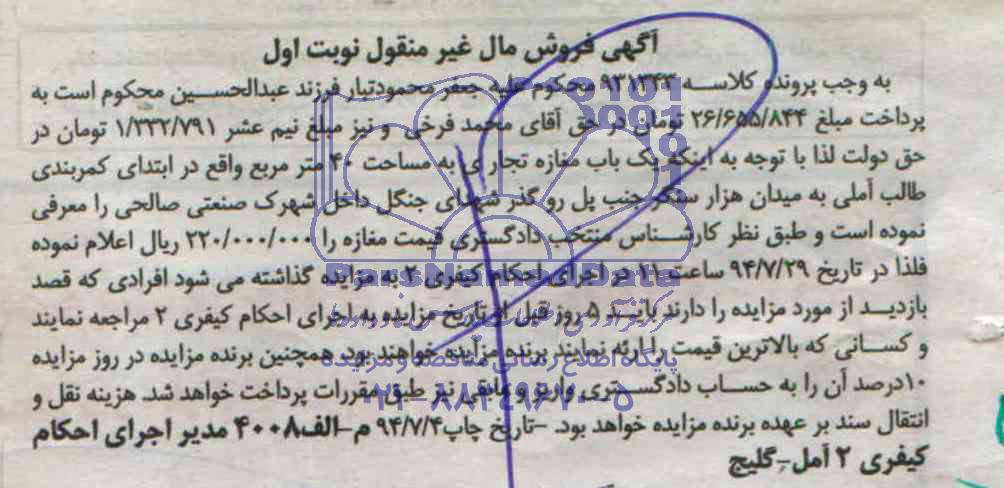 آگهی فروش مال غیر منقول نوبت اول
به وجب پرونده کلاسه ۹۳۱۳۴۳ محکوم علیه جعفر محمودتبار فرزند عبدالحسین محکوم است به
پرداخت مبلغ ۲۶/۶۵۵/۸۴۴ تومان در حق آقای محمد فرخی و نیز مبلغ نیم عشر ۱/۳۳۲/۷۹۱ تومان در
حق دولت لذا با توجه به اینکه یک باب مغازه تجاری به مساحت ۴۰ متر مربع واقع در ابتدای کمربندی
طالب آملی به میدان هزار سنگر جنب پل رو گذر شهدای جنگل داخل شهرک صنعتی صالحی را معرفی
نموده است و طبق نظر کارشناس منتخب دادگستری قیمت مغازه را ۲۲۰/۰۰۰/۰۰۰ ریال اعلام نموده
فلذا در تاریخ ۹۴/۷/۲۹ ساعت ۱۱ در اجرای احکام کیفری ۲ به مزایده گذاشته می شود افرادی که قصد
بازدید از مورد مزایده را دارند باید ۵ روز قبل از تاریخ مزایده به اجرای احکام کیفری ۲ مراجعه نمایند
و کسانی که بالاترین قیمت را ارئه نمایند برنده مزایده خواهند بود. همچنین برنده مزایده در روز مزایده
پایگاه اطلاع رسانی مناقصه و مزایده
۱۰درصد آن را به حساب دادگستری واریز و مابقی نیز طبق مقررات پرداخت خواهد شد. هزینه نقل و
۰۲۱-۸۸۳۴۹۶۷۰-۵
انتقال سند بر عهده برنده مزایده خواهد بود. -تاریخ چاپ۹۴/۷/۴ م-الف۴۰۰۸ مدیر اجرای احکام
کیفری ۲ آمل-گلیج